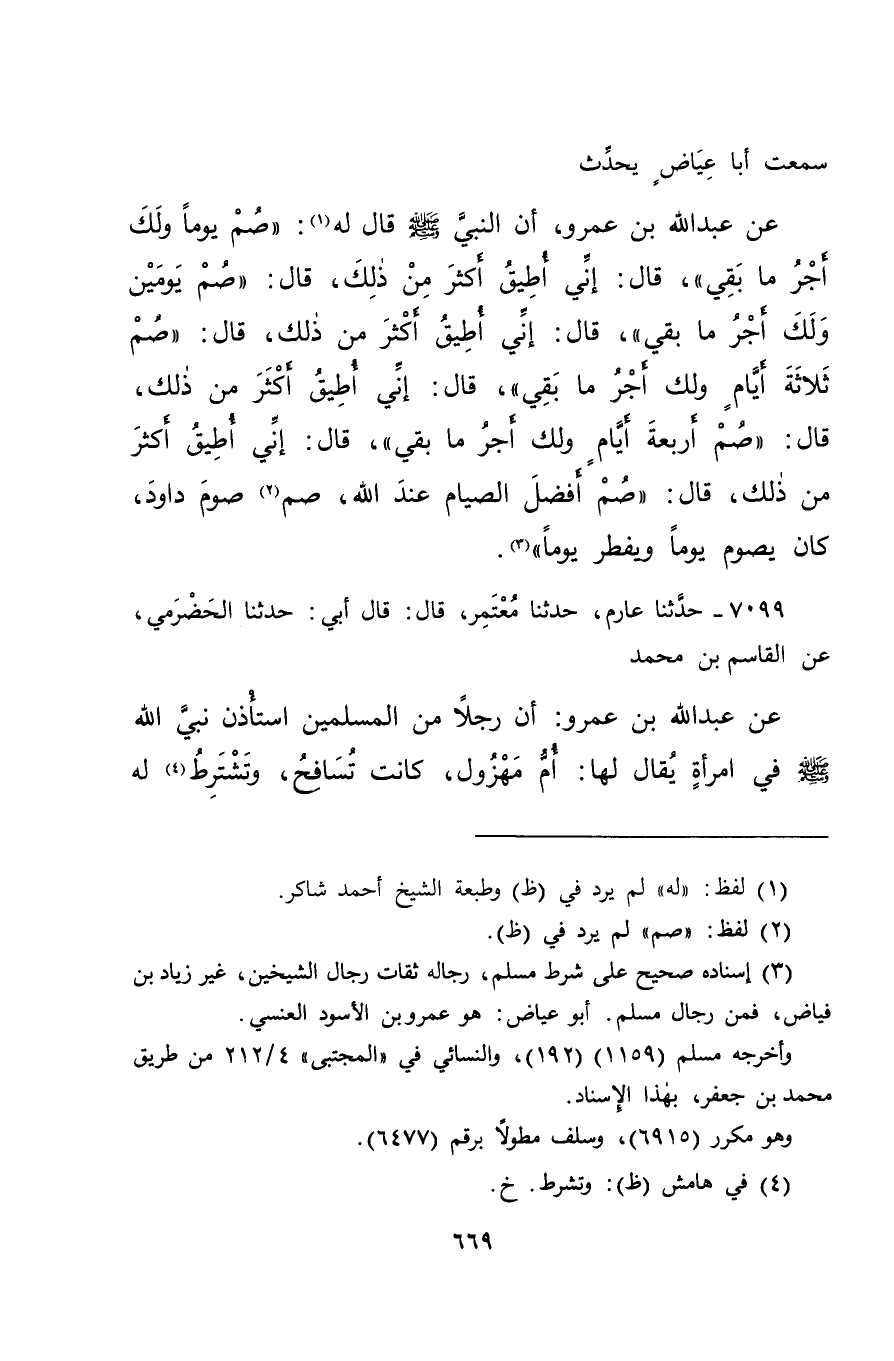 سمعت أبا عِيَاضٍ يحدِّث
عن عبدالله بن عمرو، أن النبيَّ ﷺ قال له(١): «صُمْ يوماً ولَكَ
أَجْرُ ما بَقِي»، قال: إنِّي أُطِيقُ أَكثرَ مِنْ ذٰلِكَ، قال: «صُمْ يَومَيْن
وَلَكَ أَجْرُ ما بقي»، قال: إنِّي أُطِيقُ أَكْثَرَ من ذٰلك، قال: «صُمْ
ثَلاثَةَ أَيَّامٍ ولك أَجْرُ ما بَقِي»، قال: إنِّي أُطِيقُ أَكْثَرَ من ذٰلك،
قال: «صُمْ أَربعةَ أَيَّامٍ ولك أَجرُ ما بقي»، قال: إنِّي أُطِيقُ أَكثرَ
من ذٰلك، قال: «صُمْ أَفضلَ الصيام عندَ الله، صم(٢) صومَ داودَ،
كان يصوم يوماً ويفطر يوماً»(٣).
٧٠٩٩ - حدَّثنا عارم، حدثنا مُعْتَمِر، قال: قال أبي: حدثنا الحَضْرَمي،
عن القاسم بن محمد
عن عبدالله بن عمرو: أن رجلًا من المسلمين استأْذن نبيَّ الله
ﷺ في امرأةٍ يُقال لها: أُمُّ مَهْزُول، كانت تُسَافِحُ، وتَشْتَرِطُ(٤) له
(١) لفظ: «له» لم يرد في (ظ) وطبعة الشيخ أحمد شاكر.
(٢) لفظ: «صم» لم يرد في (ظ).
(٣) إسناده صحيح على شرط مسلم، رجاله ثقات رجال الشيخين، غير زياد بن
فياض، فمن رجال مسلم. أبو عياض: هو عمرو بن الأسود العنسي.
وأخرجه مسلم (١١٥٩) (١٩٢)، والنسائي في «المجتبى» ٢١٢/٤ من طريق
محمد بن جعفر، بهٰذا الإسناد.
وهو مكرر (٦٩١٥)، وسلف مطولًا برقم (٦٤٧٧).
(٤) في هامش (ظ): وتشرط. خ.
٦٦٩